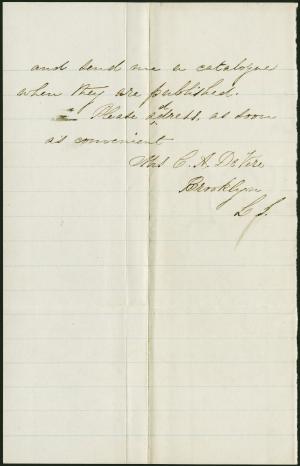 and send me a catalogue
when they are published.
Please address, as soon
as convenient
Mrs C. A. DeVere
Brooklyn
L. I.